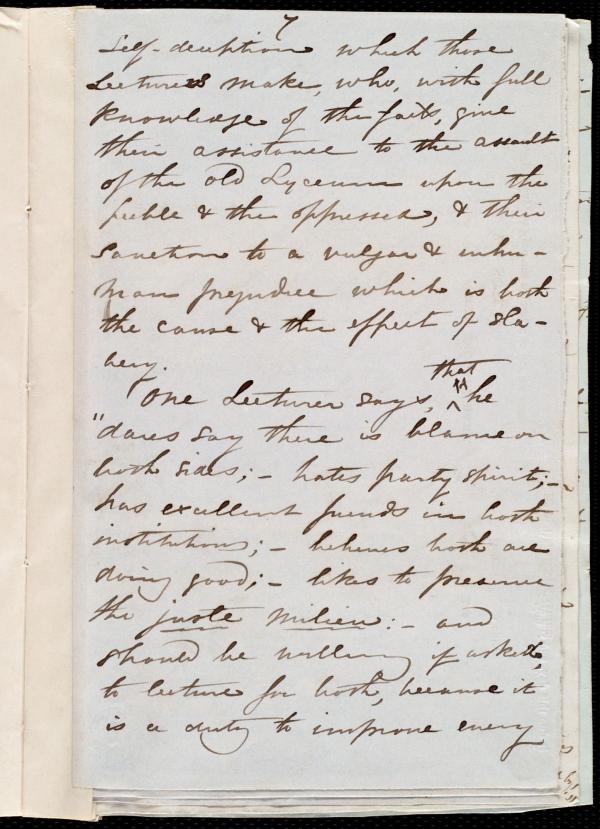 7
Self-deception which those
Lecturers make, who, with full
knowledge of the facts, give
their assistance to the assault
of the old Lyceum upon the
feeble & the oppressed, & their
sanction to a vulgar & inhu-
man prejudice which is both
the cause & the effect of sla-
very.
that
One Lecturer says, ^ he
"dares say there is blame on
both sides; - hates party spirit; -
has excellent friends in both
institutions; - believes both are
doing good; - likes to preserve
the juste milieu: - and
should be willing if asked,
to lecture for both, because it
is a duty to improve every